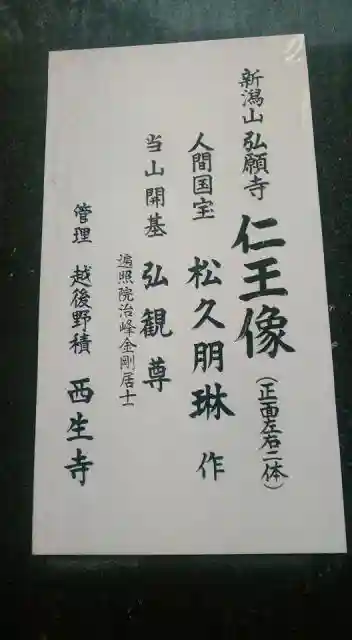 新潟山 弘願寺 仁王像(正面左右二体)
人間国宝 松久朋琳 作
当山開基 弘観尊
遍照院治峰金剛居士
管理 越後野積 西生寺